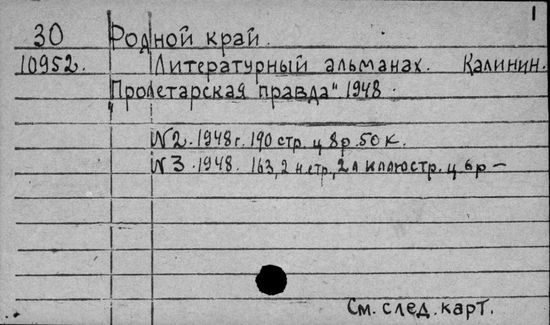 1
30 Родной край.
10952. Литературный альманах. Калинин.
"Пролетарская правда" 1948.
N2. 1948г. 190 стр. ц 8р. 50 к.
N3. 1948. 163, 2 н.стр., 2 л иллюстр. ц 6р —
См. след. карт.